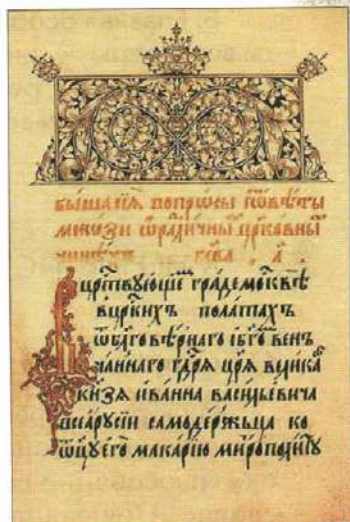 быша сїѧ вопросы ї ѿвѣты
мнѡзи ѡ разлічны цр҃ковны
чинѣхъ глава а
цр҃тв꙽ующие граде москвѣ
в цр҃кихъ полатахъ
ѿ бл҃говѣрнаго і бг҃о вен
чаннаго гд҃рѧ цр҃ѧ велика
кн҃зѧ іванна васильевича
всеа русїи самодержьца ко
ѿцу его макарїю митрополиту